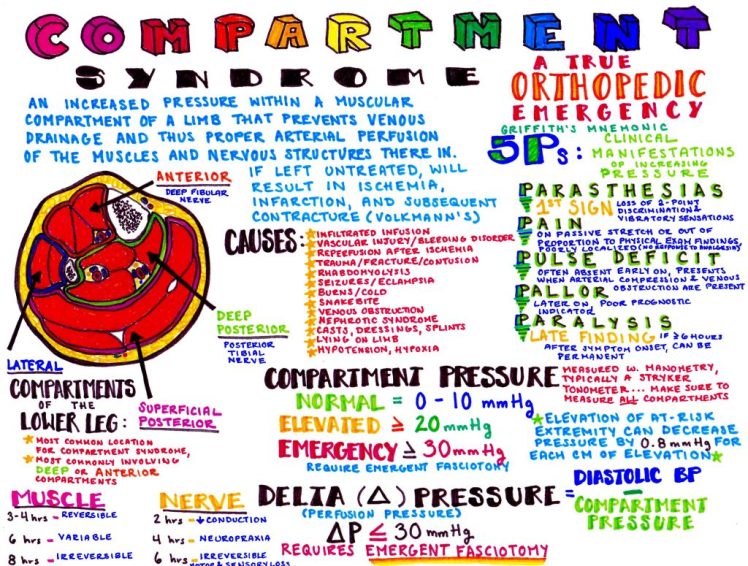 COMPARTMENT
SYNDROME
A TRUE
ORTHOPEDIC
EMERGENCY
AN INCREASED PRESSURE WITHIN A MUSCULAR
COMPARTMENT OF A LIMB THAT PREVENTS VENOUS
DRAINAGE AND THUS PROPER ARTERIAL PERFUSION
OF THE MUSCLES AND NERVOUS STRUCTURES THERE IN.
IF LEFT UNTREATED, WILL
RESULT IN ISCHEMIA,
INFARCTION, AND SUBSEQUENT
CONTRACTURE (VOLKMANN'S)
ANTERIOR
DEEP FIBULAR
NERVE
DEEP
POSTERIOR
POSTERIOR
TIBIAL
NERVE
LATERAL
SUPERFICIAL
POSTERIOR
COMPARTMENTS
OF THE
LOWER LEG:
MOST COMMON LOCATION
FOR COMPARTMENT SYNDROME,
MOST COMMONLY INVOLVING
DEEP OR ANTERIOR
COMPARTMENTS
CAUSES:
INFILTRATED INFUSION
VASCULAR INJURY/BLEEDING DISORDER
REPERFUSION AFTER ISCHEMIA
TRAUMA/FRACTURE/CONTUSION
RHABDOMYOLYSIS
SEIZURES/ECLAMPSIA
BURNS/COLD
SNAKEBITE
VENOUS OBSTRUCTION
NEPHROTIC SYNDROME
CASTS, DRESSINGS, SPLINTS
LYING ON LIMB
HYPOTENSION, HYPOXIA
GRIFFITH'S MNEMONIC
5 Ps: CLINICAL
MANIFESTATIONS
OF INCREASING
PRESSURE
PARASTHESIAS
1ST SIGN LOSS OF 2-POINT
DISCRIMINATION &
VIBRATORY SENSATIONS
PAIN
ON PASSIVE STRETCH OR OUT OF
PROPORTION TO PHYSICAL EXAM FINDINGS,
POORLY LOCALIZED (NO RESPONSE TO ANALGESIA)
PULSE DEFICIT
OFTEN ABSENT EARLY ON, PRESENTS
WHEN ARTERIAL COMPRESSION & VENOUS
OBSTRUCTION ARE PRESENT
PALLOR
LATER ON, POOR PROGNOSTIC
INDICATOR
PARALYSIS
LATE FINDING IF ≥6 HOURS
AFTER SYMPTOM ONSET, CAN BE
PERMANENT
COMPARTMENT PRESSURE
NORMAL = 0 - 10 mmHg
ELEVATED ≥ 20 mmHg
EMERGENCY ≥ 30 mmHg
REQUIRE EMERGENT FASCIOTOMY
MEASURED W. MANOMETRY,
TYPICALLY A STRYKER
TONOMETER... MAKE SURE TO
MEASURE ALL COMPARTMENTS
ELEVATION OF AT-RISK
EXTREMITY CAN DECREASE
PRESSURE BY 0.8 mmHg FOR
EACH CM OF ELEVATION
MUSCLE
3-4 hrs - REVERSIBLE
6 hrs - VARIABLE
8 hrs - IRREVERSIBLE
NERVE
2 hrs - ↓ CONDUCTION
4 hrs - NEUROPRAXIA
6 hrs - IRREVERSIBLE
MOTOR & SENSORY LOSS
DELTA (Δ) PRESSURE = DIASTOLIC BP
− COMPARTMENT
PRESSURE
(PERFUSION PRESSURE)
ΔP ≤ 30 mmHg
REQUIRES EMERGENT FASCIOTOMY